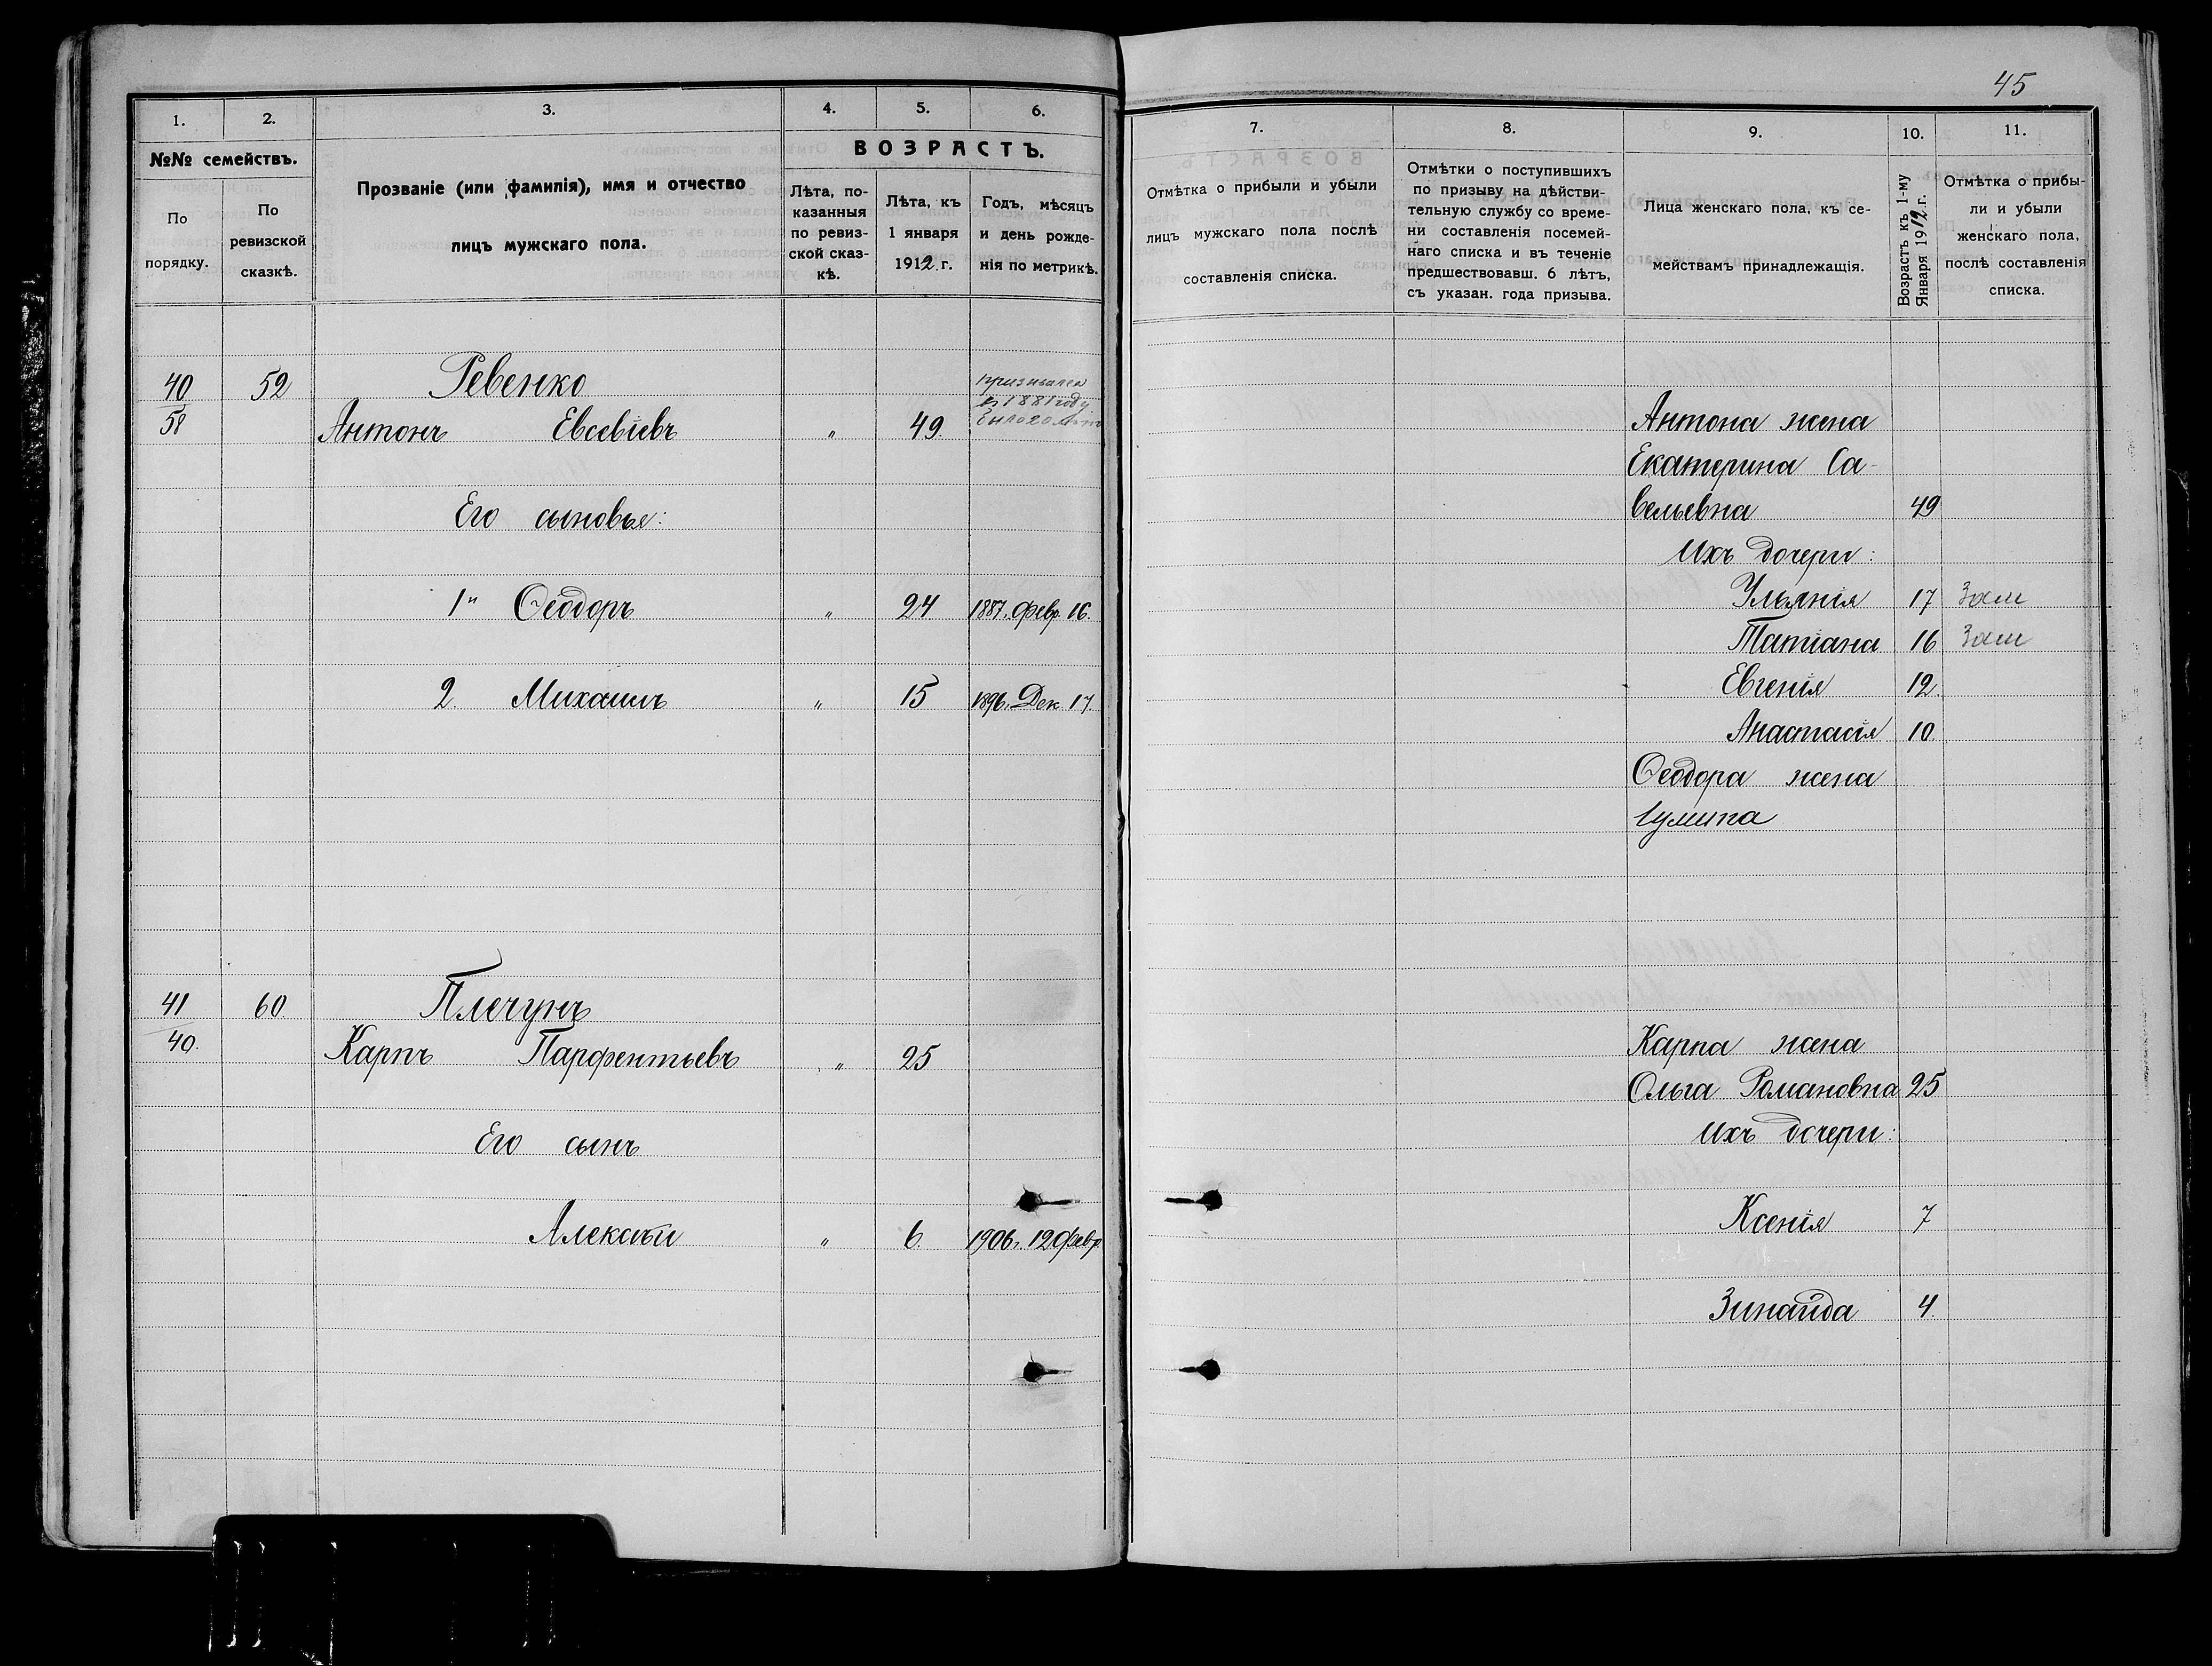 45
1.
2.
3.
4.
5.
6.
№№ семействъ.
По порядку.
По ревизской сказкѣ.
Прозваніе (или фамилія), имя и отчество
лицъ мужскаго пола.
ВОЗРАСТЪ.
Лѣта, по-
казанныя
по ревиз-
ской сказ-
кѣ.
Лѣта, къ
1 января
1912 г.
Годъ, мѣсяцъ
и день рожде-
нія по метрикѣ.
40 52 Ревенко
58
призывался
въ 1881 году
Антонъ Евсевіевъ „ 49.
Его сыновья:
1й Ѳеодоръ „ 24 1887. февр. 16.
2. Михаилъ „ 15 1896. Дек. 17.
41 60 Плечунъ
40.
Карпъ Парфентьевъ „ 25
Его сынъ
Алексѣй „ 6. 1906. 12 февр.
7.
8.
9.
10.
11.
Отмѣтка о прибыли и убыли
лицъ мужскаго пола послѣ
составленія списка.
Отмѣтки о поступившихъ
по призыву на дѣйстви-
тельную службу со време-
ни составленія посемей-
наго списка и въ теченіе
предшествовавш. 6 лѣтъ,
съ указан. года призыва.
Лица женскаго пола, къ се-
мействамъ принадлежащія.
Возрастъ къ 1-му
Января 1912 г.
Отмѣтка о прибы-
ли и убыли
женскаго пола,
послѣ составленія
списка.
Антона жена
Екатерина Са-
вельевна 49
Ихъ дочери:
Ульянія 17 Зам
Татіана 16 Зам
Евгенія 12.
Анастасія 10.
Ѳеодора жена
Карпа жена
Ольга Романовна 25
Ихъ дочери:
Ксенія 7
Зинаида 4.